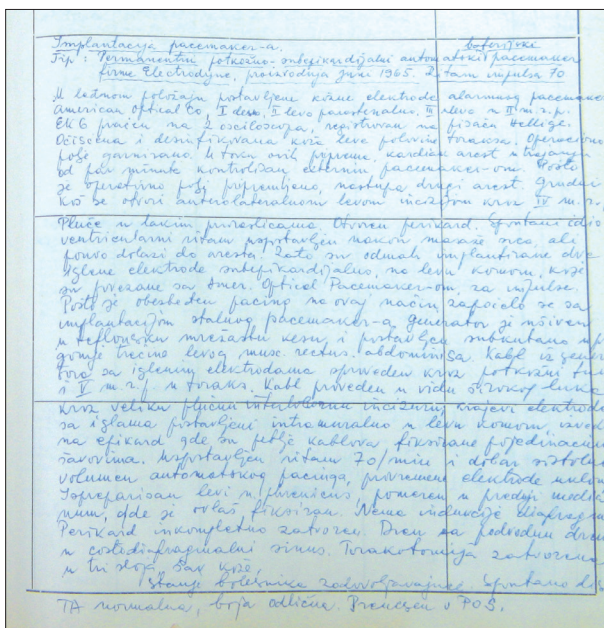 Implantacija pacemaker-a. baterijski
Tip: Permanentni potkožno-subepikardijalni automatski pacemaker
firme Electrodyne, proizvodnja juni 1965. Ritam impulsa 70
U ležećem položaju postavljene kožne elektrode alarmnog pacemaker
American optical Co, I desno, II levo parasternalno, III levo u II m.r.p.
EKG praćen na 2 osciloskopa, registrovan na pisaču Hellige.
Očišćena i desinfikovana koža leve polovine toraksa. Operaciono
polje garnirano. U toku ovih priprema, kardiac arest u trajanju
od par minuta kontrolisan externim pacemaker-om. Pošto
je operativno polje pripremljeno, nastupa drugi arest. Grudni
koš se otvori anterolateralnom levom incizijom kroz IV m.r.
Pluće u takim priraslicama. Otvoren perikard. Spontani idio
ventricularni ritam uspostavljen nakon masaže srca, ali
ponovo dolazi do aresta. Zato su odmah implantirane dve
iglene elektrode subepikardijalno, na levu komoru, koje
su povezane sa Amer. Optical Pacemaker-om, za impulse.
Pošto je obezbeđen pacing na ovaj način započelo se sa
implantacijom stalnog pacemaker-a generator je ušiven
u teflonsku mrežastu kesu i postavljen subkutano u p
gornje trećine levog musc. rectus. abdominisa. Kabl iz gener
tora sa iglenim elektrodama sproveden kroz potkožni tun
i V m.r.p. u toraks. Kabl proveden u vidu širokog luka
kroz veliku plućnu interlobarnu incizuru, krajevi elektrode
sa iglama postavljeni intramuralno u levu komoru, izvod
na epikard gde su petlje kablova fiksirane pojedinačnim
šavovima. Uspostavljen ritam 70/min i dobar sistolni
volumen automatskog pacinga, privremene elektrode uklon
Isprepariran levi n. phrenicus, pomeren u prednji medi
num, gde je ovlaš fiksiran. Nema indukcije diafragme
Perikard inkompletno zatvoren. Dren sa podvodnom dren
u costodiafragmalni sinus. Torakotomija zatvorena
u tri sloja, šav kože.
Stanje bolesnika zadovoljavajuće. Spontano dis
TA normalna, boja odlična. Prenesen u POS.